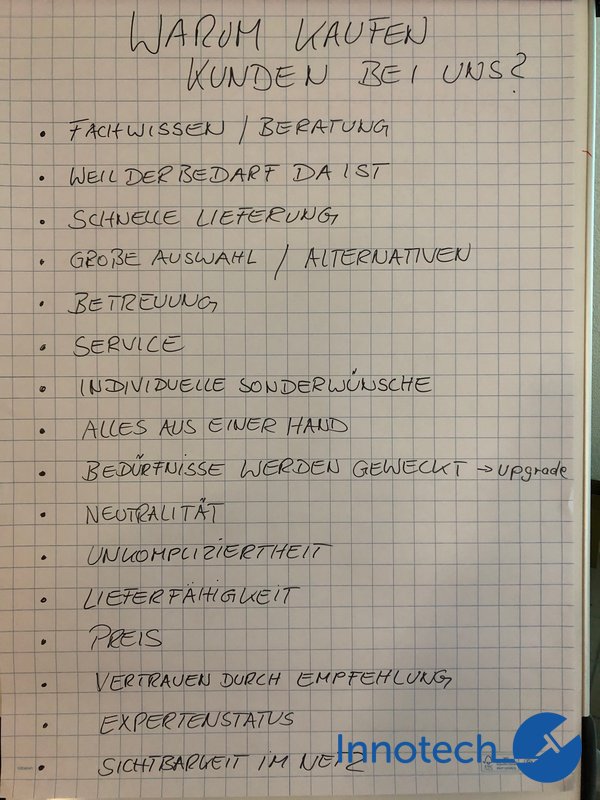 WARUM KAUFEN
KUNDEN BEI UNS?
• FACHWISSEN / BERATUNG
• WEIL DER BEDARF DA IST
• SCHNELLE LIEFERUNG
• GROẞE AUSWAHL / ALTERNATIVEN
• BETREUUNG
• SERVICE
• INDIVIDUELLE SONDERWÜNSCHE
• ALLES AUS EINER HAND
• BEDÜRFNISSE WERDEN GEWECKT → upgrade
• NEUTRALITÄT
• UNKOMPLIZIERTHEIT
• LIEFERFÄHIGKEIT
• PREIS
• VERTRAUEN DURCH EMPFEHLUNG
• EXPERTENSTATUS
• SICHTBARKEIT IM NETZ
Innotech